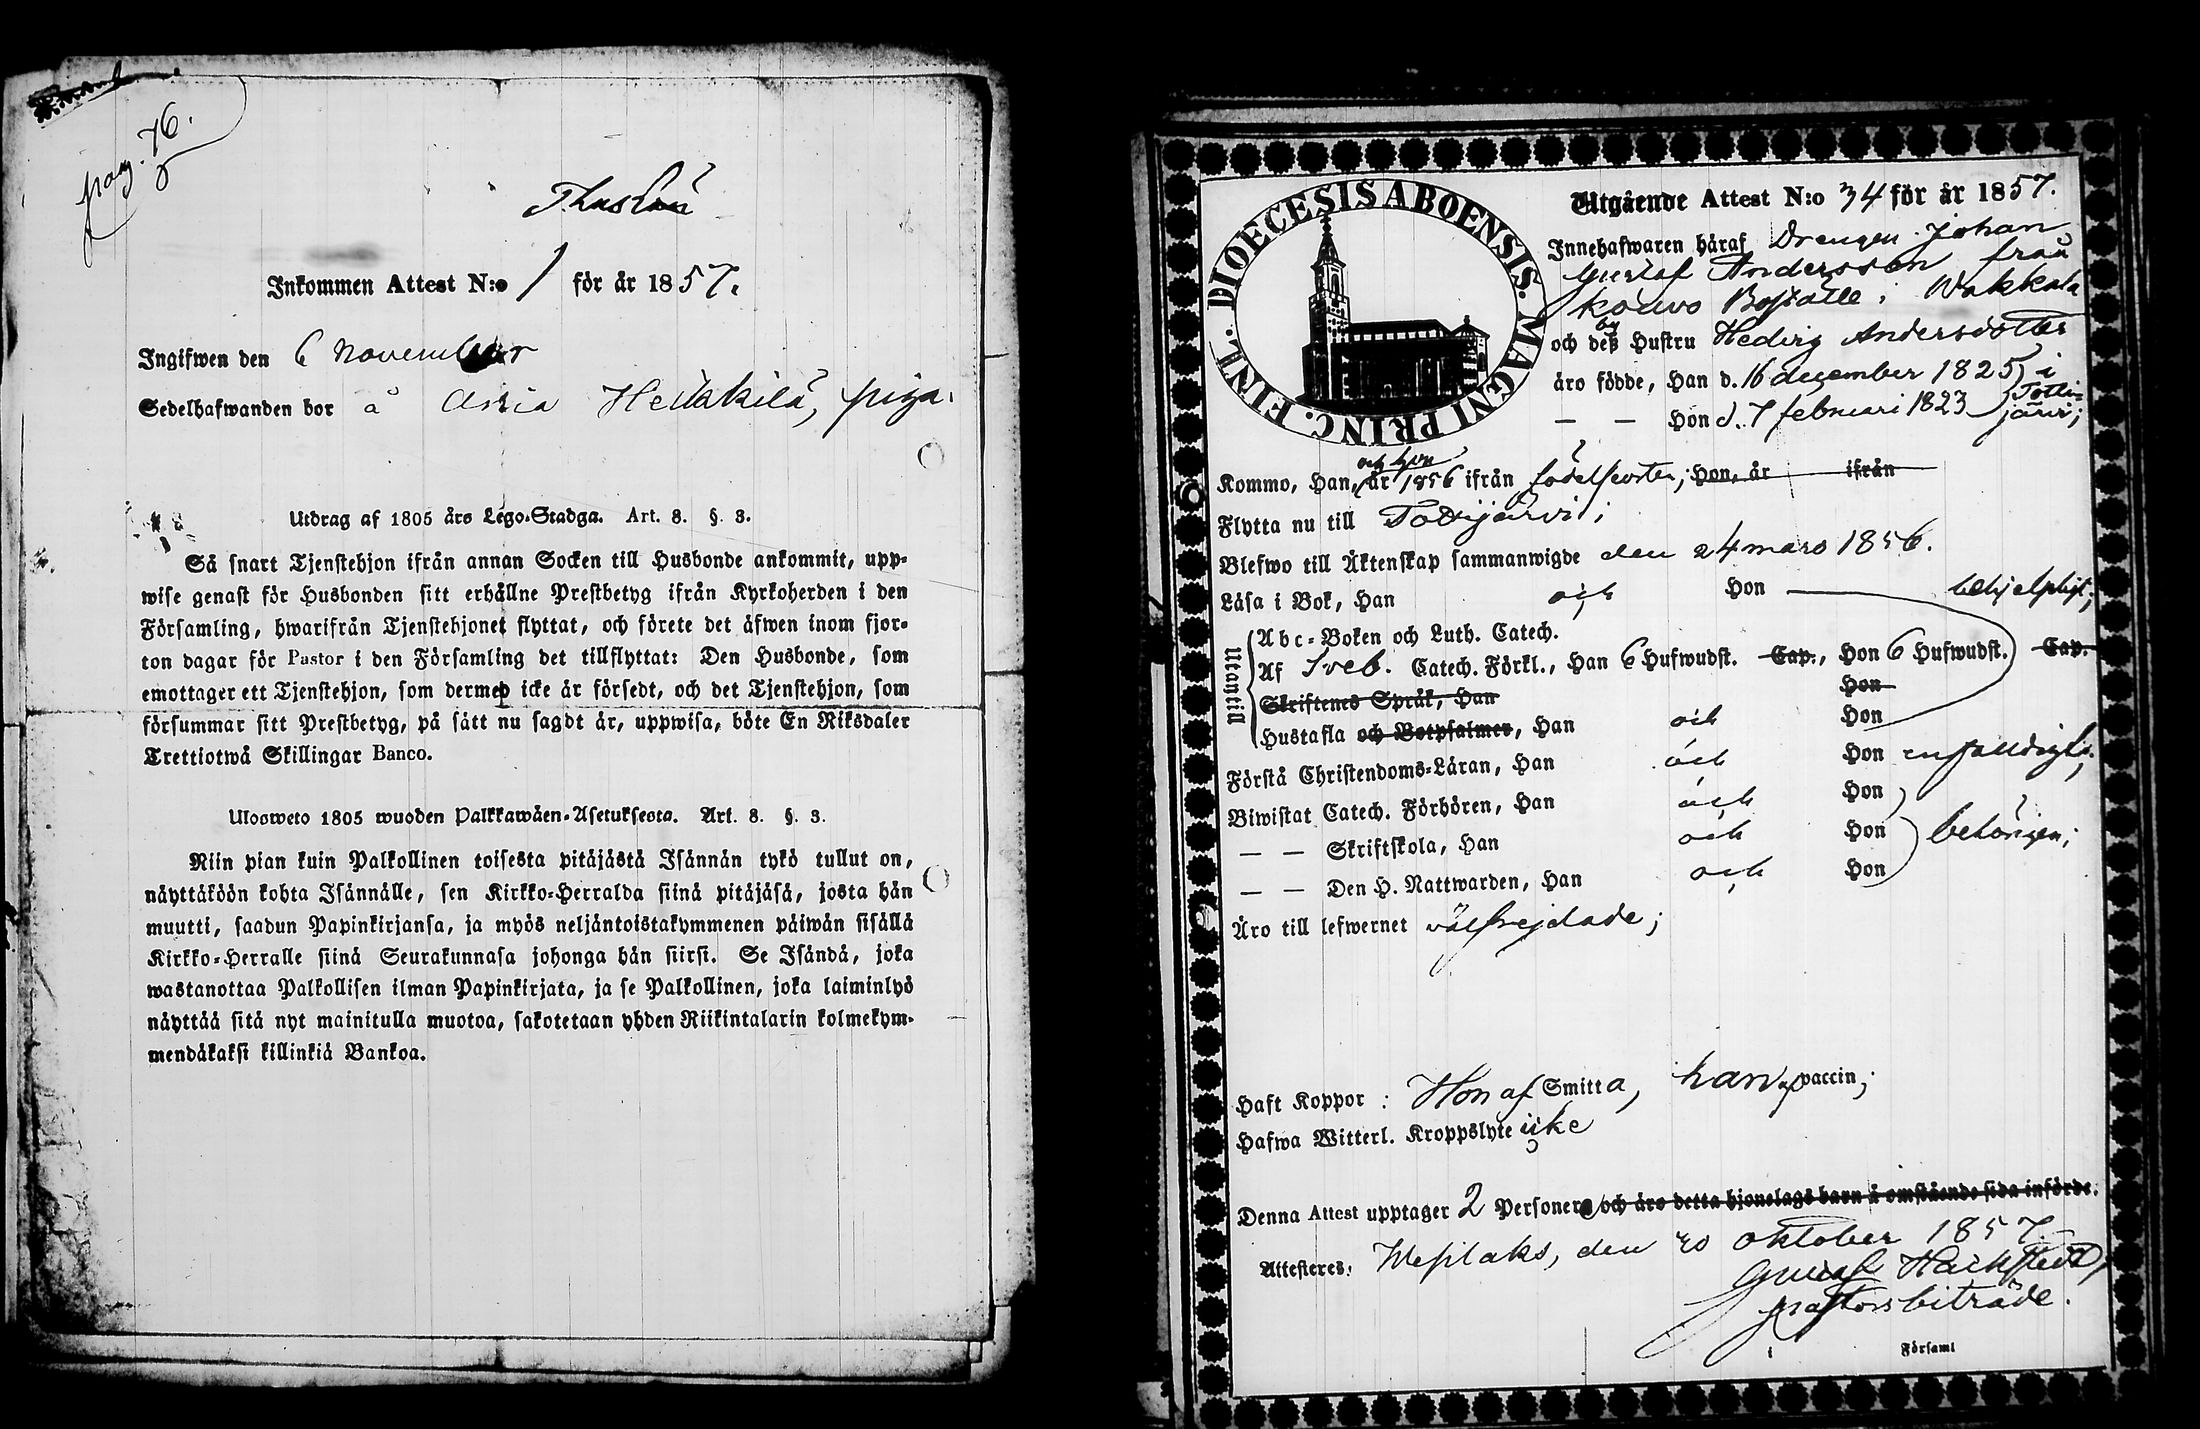 pag. 76.
Inkommen Attest N:o 1 för år 1857.
Ingifwen den 6 November
Sedelhafwanden bor å Heikkilä, piga.
Utdrag af 1805 års Lego-Stadga. Art. 8. §. 3.
Så snart Tjenstehjon ifrån annan Socken till Husbonde ankommit, upp-
wise genast för Husbonden sitt erhållne Prestbetyg ifrån Kyrkoherden i den
Församling, hwarifrån Tjenstehjonet flyttat, och förete det äfwen inom fjor-
ton dagar för Pastor i den Församling det tillflyttat: Den Husbonde, som
emottager ett Tjenstehjon, som dermed icke är försedt, och det Tjenstehjon, som
försummar sitt Prestbetyg, på sätt nu sagdt är, uppwisa, böte En Riksdaler
Trettiotwå Skillingar Banco.
Ulosweto 1805 wuoden Palkkawäen-Asetuksesta. Art. 8. §. 3.
Niin pian kuin Palkollinen toisesta pitäjästä Isännän tykö tullut on,
näyttäköön kohta Isännälle, sen Kirkko-Herralda siinä pitäjäsä, josta hän
muutti, saadun Papinkirjansa, ja myös neljäntoistakymmenen päiwän sisällä
Kirkko-Herralle siinä Seurakunnasa johonga hän siirsi. Se Isändä, joka
wastanottaa Palkollisen ilman Papinkirjata, ja se Palkollinen, joka laiminlyö
näyttää sitä nyt mainitulla muotoa, sakotetaan yhden Riikintalarin kolmekym-
mendäkaksi killinkiä Bankoa.
DIOECESIS ABOENSIS. MAGNI PRINC. FINL.
Utgående Attest N:o 34 för år 1857.
Innehafwaren häraf Drengen Johan
Gustaf Andersson från
Kouvo Boställe i Wakkala
by
och deß Hustru Hedvig Andersdotter
äro födde, Han d. 16 december 1825 i
— — Hon d. 7 februari 1823 Tottijärvi;
och hon
Kommo, Han, år 1856 ifrån födelseorten; Hon, år ifrån
Flytta nu till Tottijärvi;
Blefwo till Äktenskap sammanwigde den 24 mars 1856.
Läsa i Bok, Han och Hon behjelpligt;
Utantill
Abc-Boken och Luth. Catech.
Af Sveb. Catech. Förkl., Han 6 Hufwudst. Cap., Hon 6 Hufwudst. Cap.
Skriftenes Språk, Han Hon
Hustafla och Botpsalmer, Han och Hon
Förstå Christendoms-Läran, Han och Hon enfalldigt;
Biwistat Catech. Förhören, Han och Hon
— — Skriftskola, Han och Hon behörigen;
— — Den H. Nattwarden, Han och Hon
Äro till lefwernet välfrejdade;
Haft Koppor: Hon af Smitta, han af vaccin;
Hafwa Witterl. Kroppslyte icke
Denna Attest upptager 2 Personer och äro detta hjonelags barn å omstående sida införde.
Attesteres, Wesilaks, den 20 oktober 1857.
Gustaf
pastorsbiträde.
i Församl